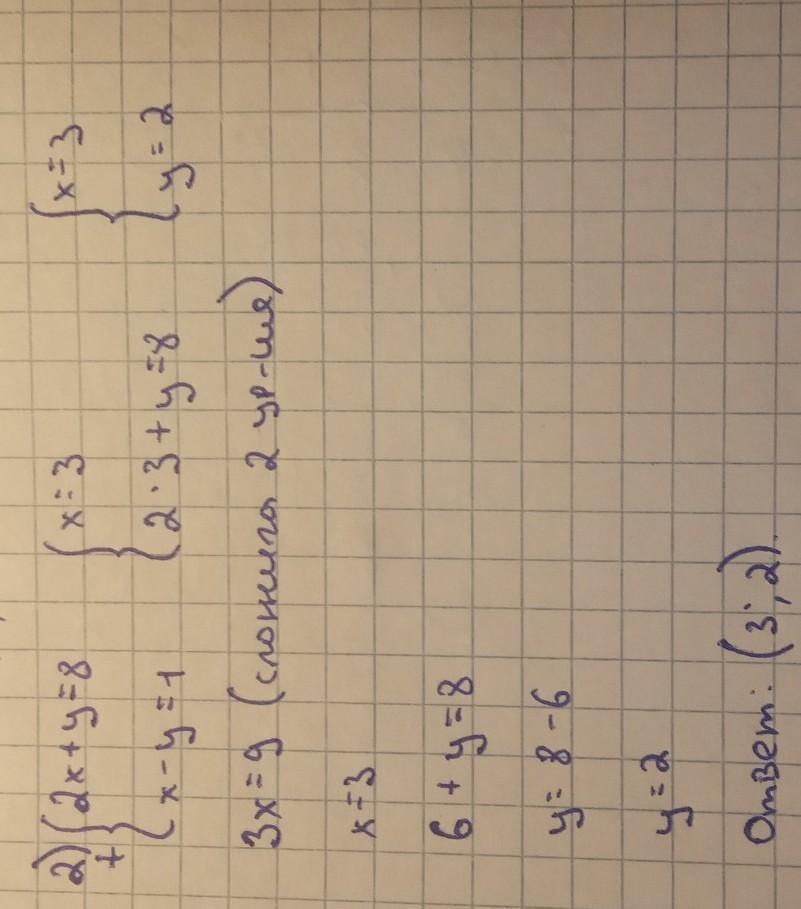 2) + { 2x+y=8 { x=3 { x=3
x-y=1 2·3+y=8 y=2
3x=9 (сложила 2 ур-ия)
x=3
6+y=8
y=8-6
y=2
Ответ: (3; 2).